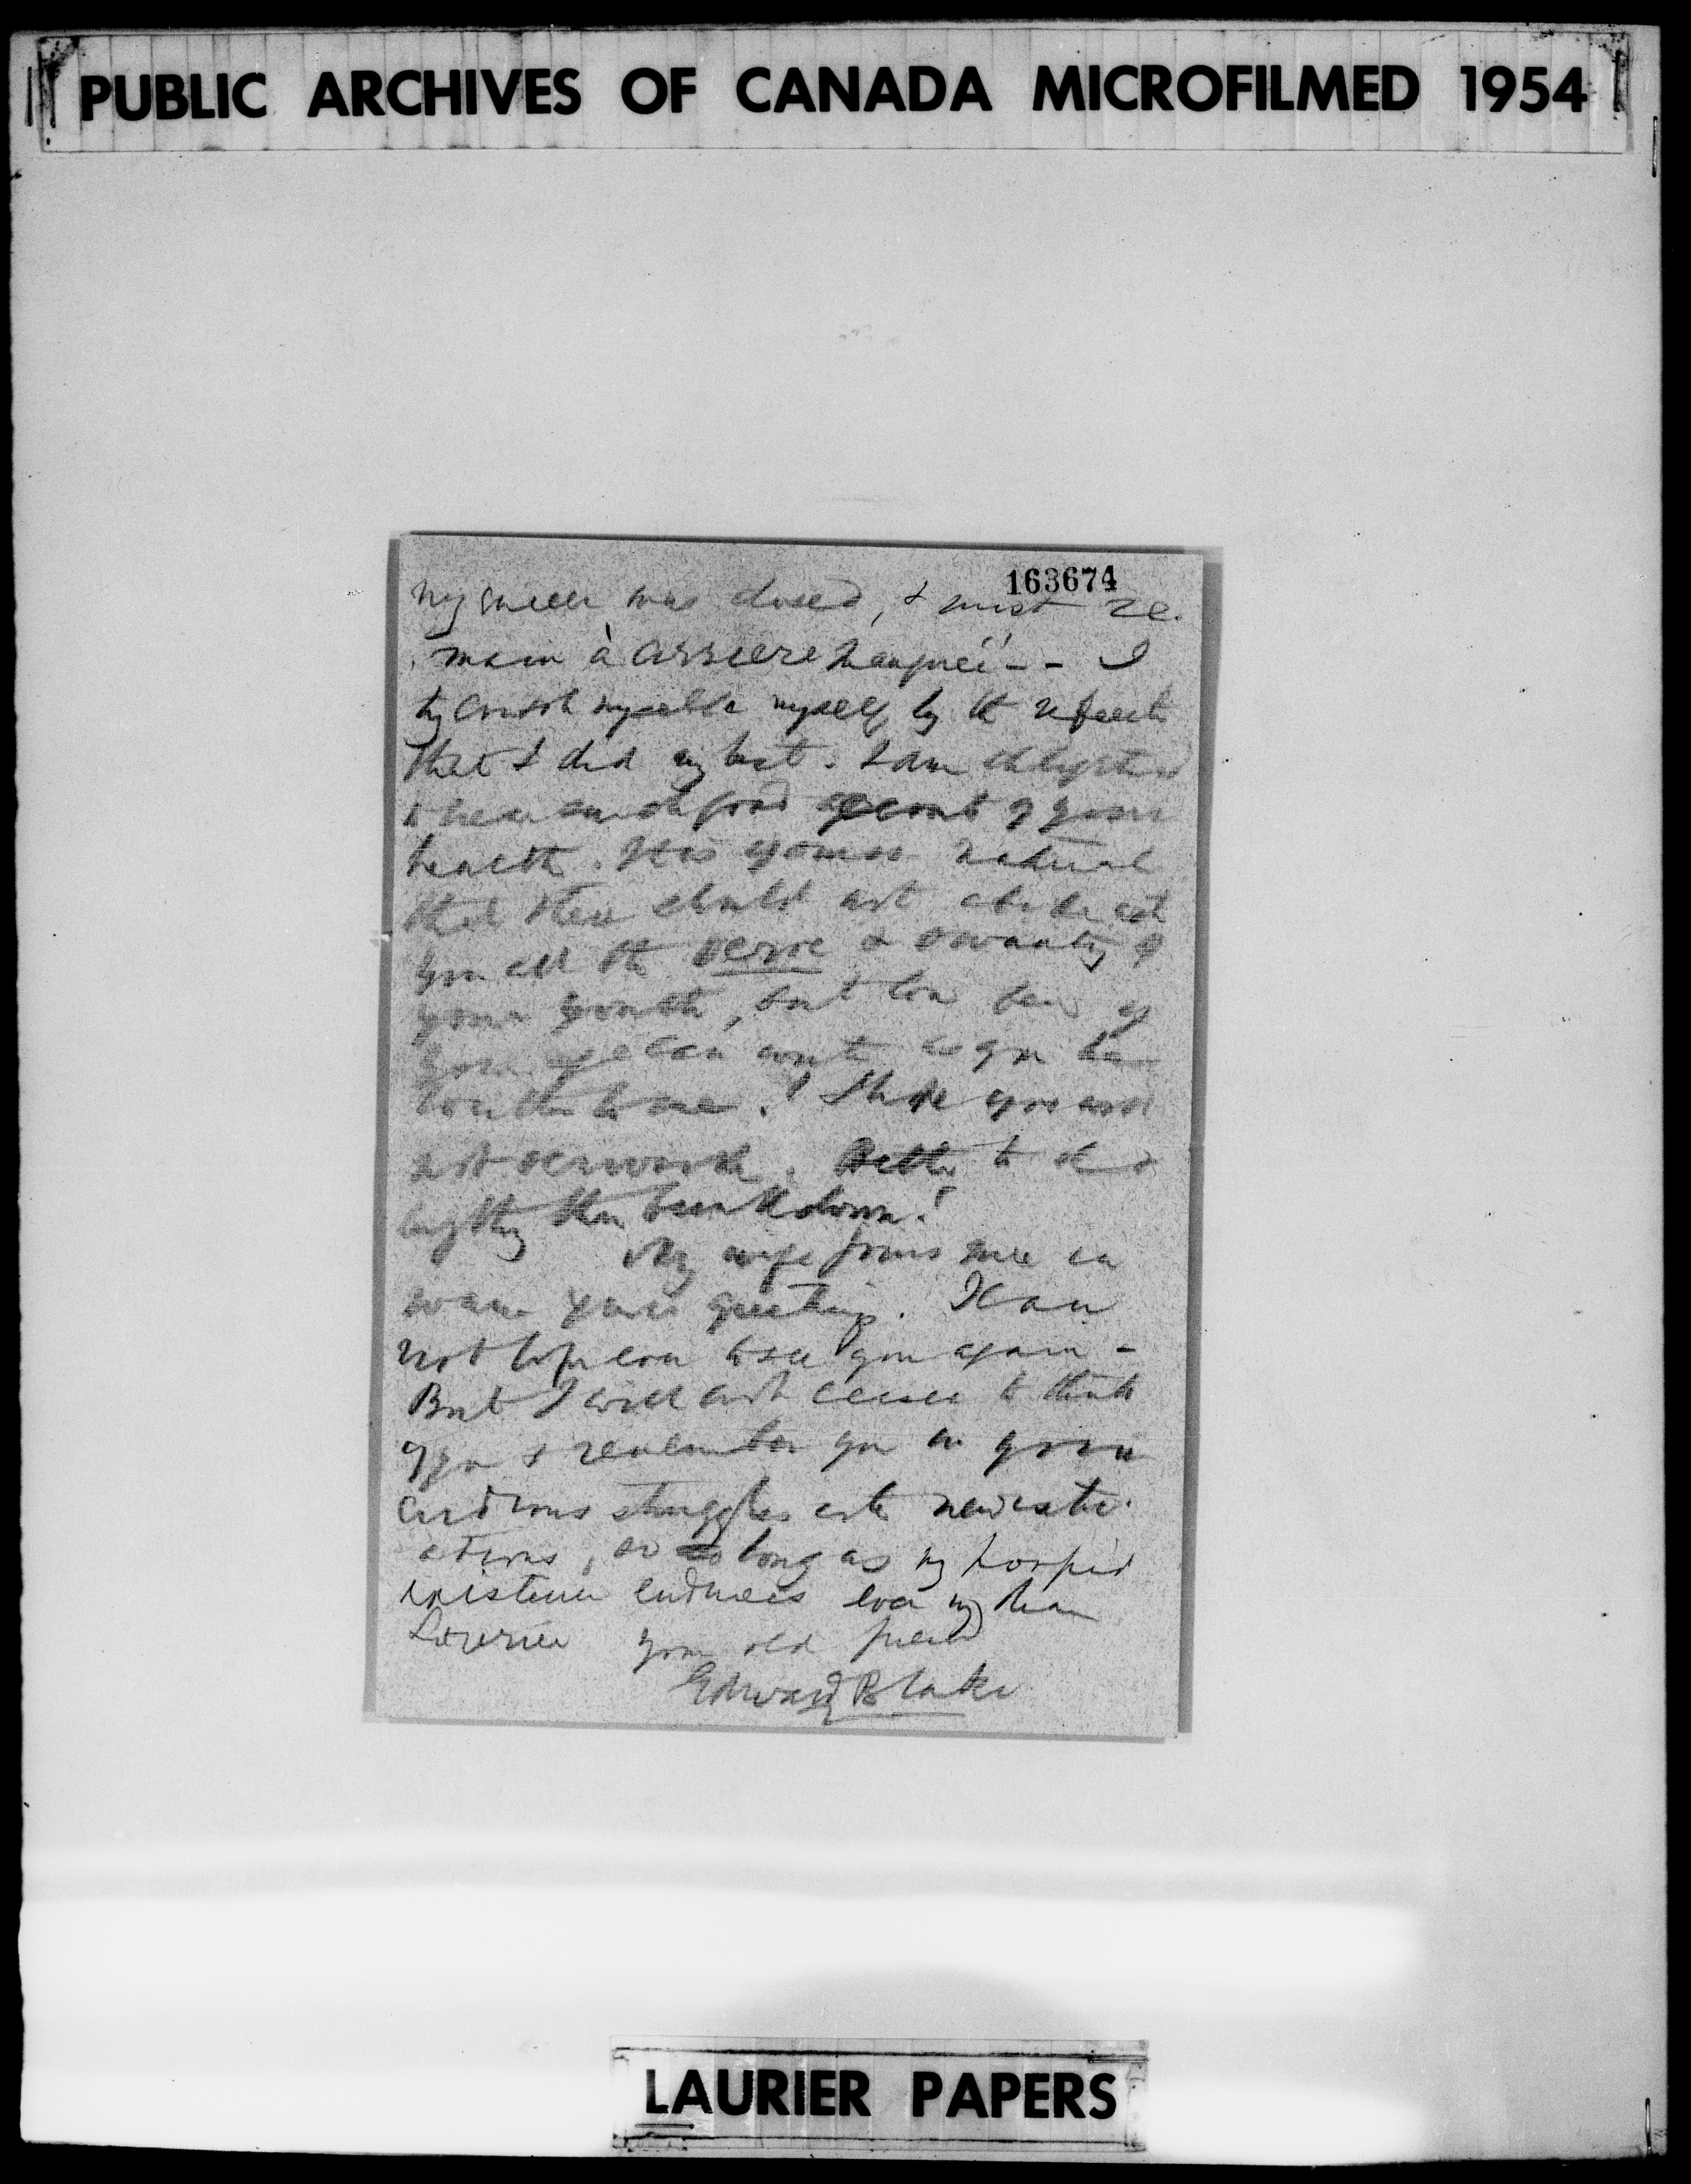 PUBLIC ARCHIVES OF CANADA MICROFILMED 1954
163674
my career was closed, & must re-
main a carriere manquée - - I
try myself by the
that I did my best. I am delighted
to hear such good account of your
health. It is of course natural
that there should not abide with
you all the verve & of
your youth, but how few of
your age can as you have
to me! I hope you will
not overwork. Better to do
anything than break down!
My wife joins me in
warm greetings. I can
not hope ever to see you again -
But I will not cease to think
of you & remember you in your
arduous struggles
ations, so long as my torpid
existence endures Ever my dear
Laurier your old friend
Edward Blake
LAURIER PAPERS